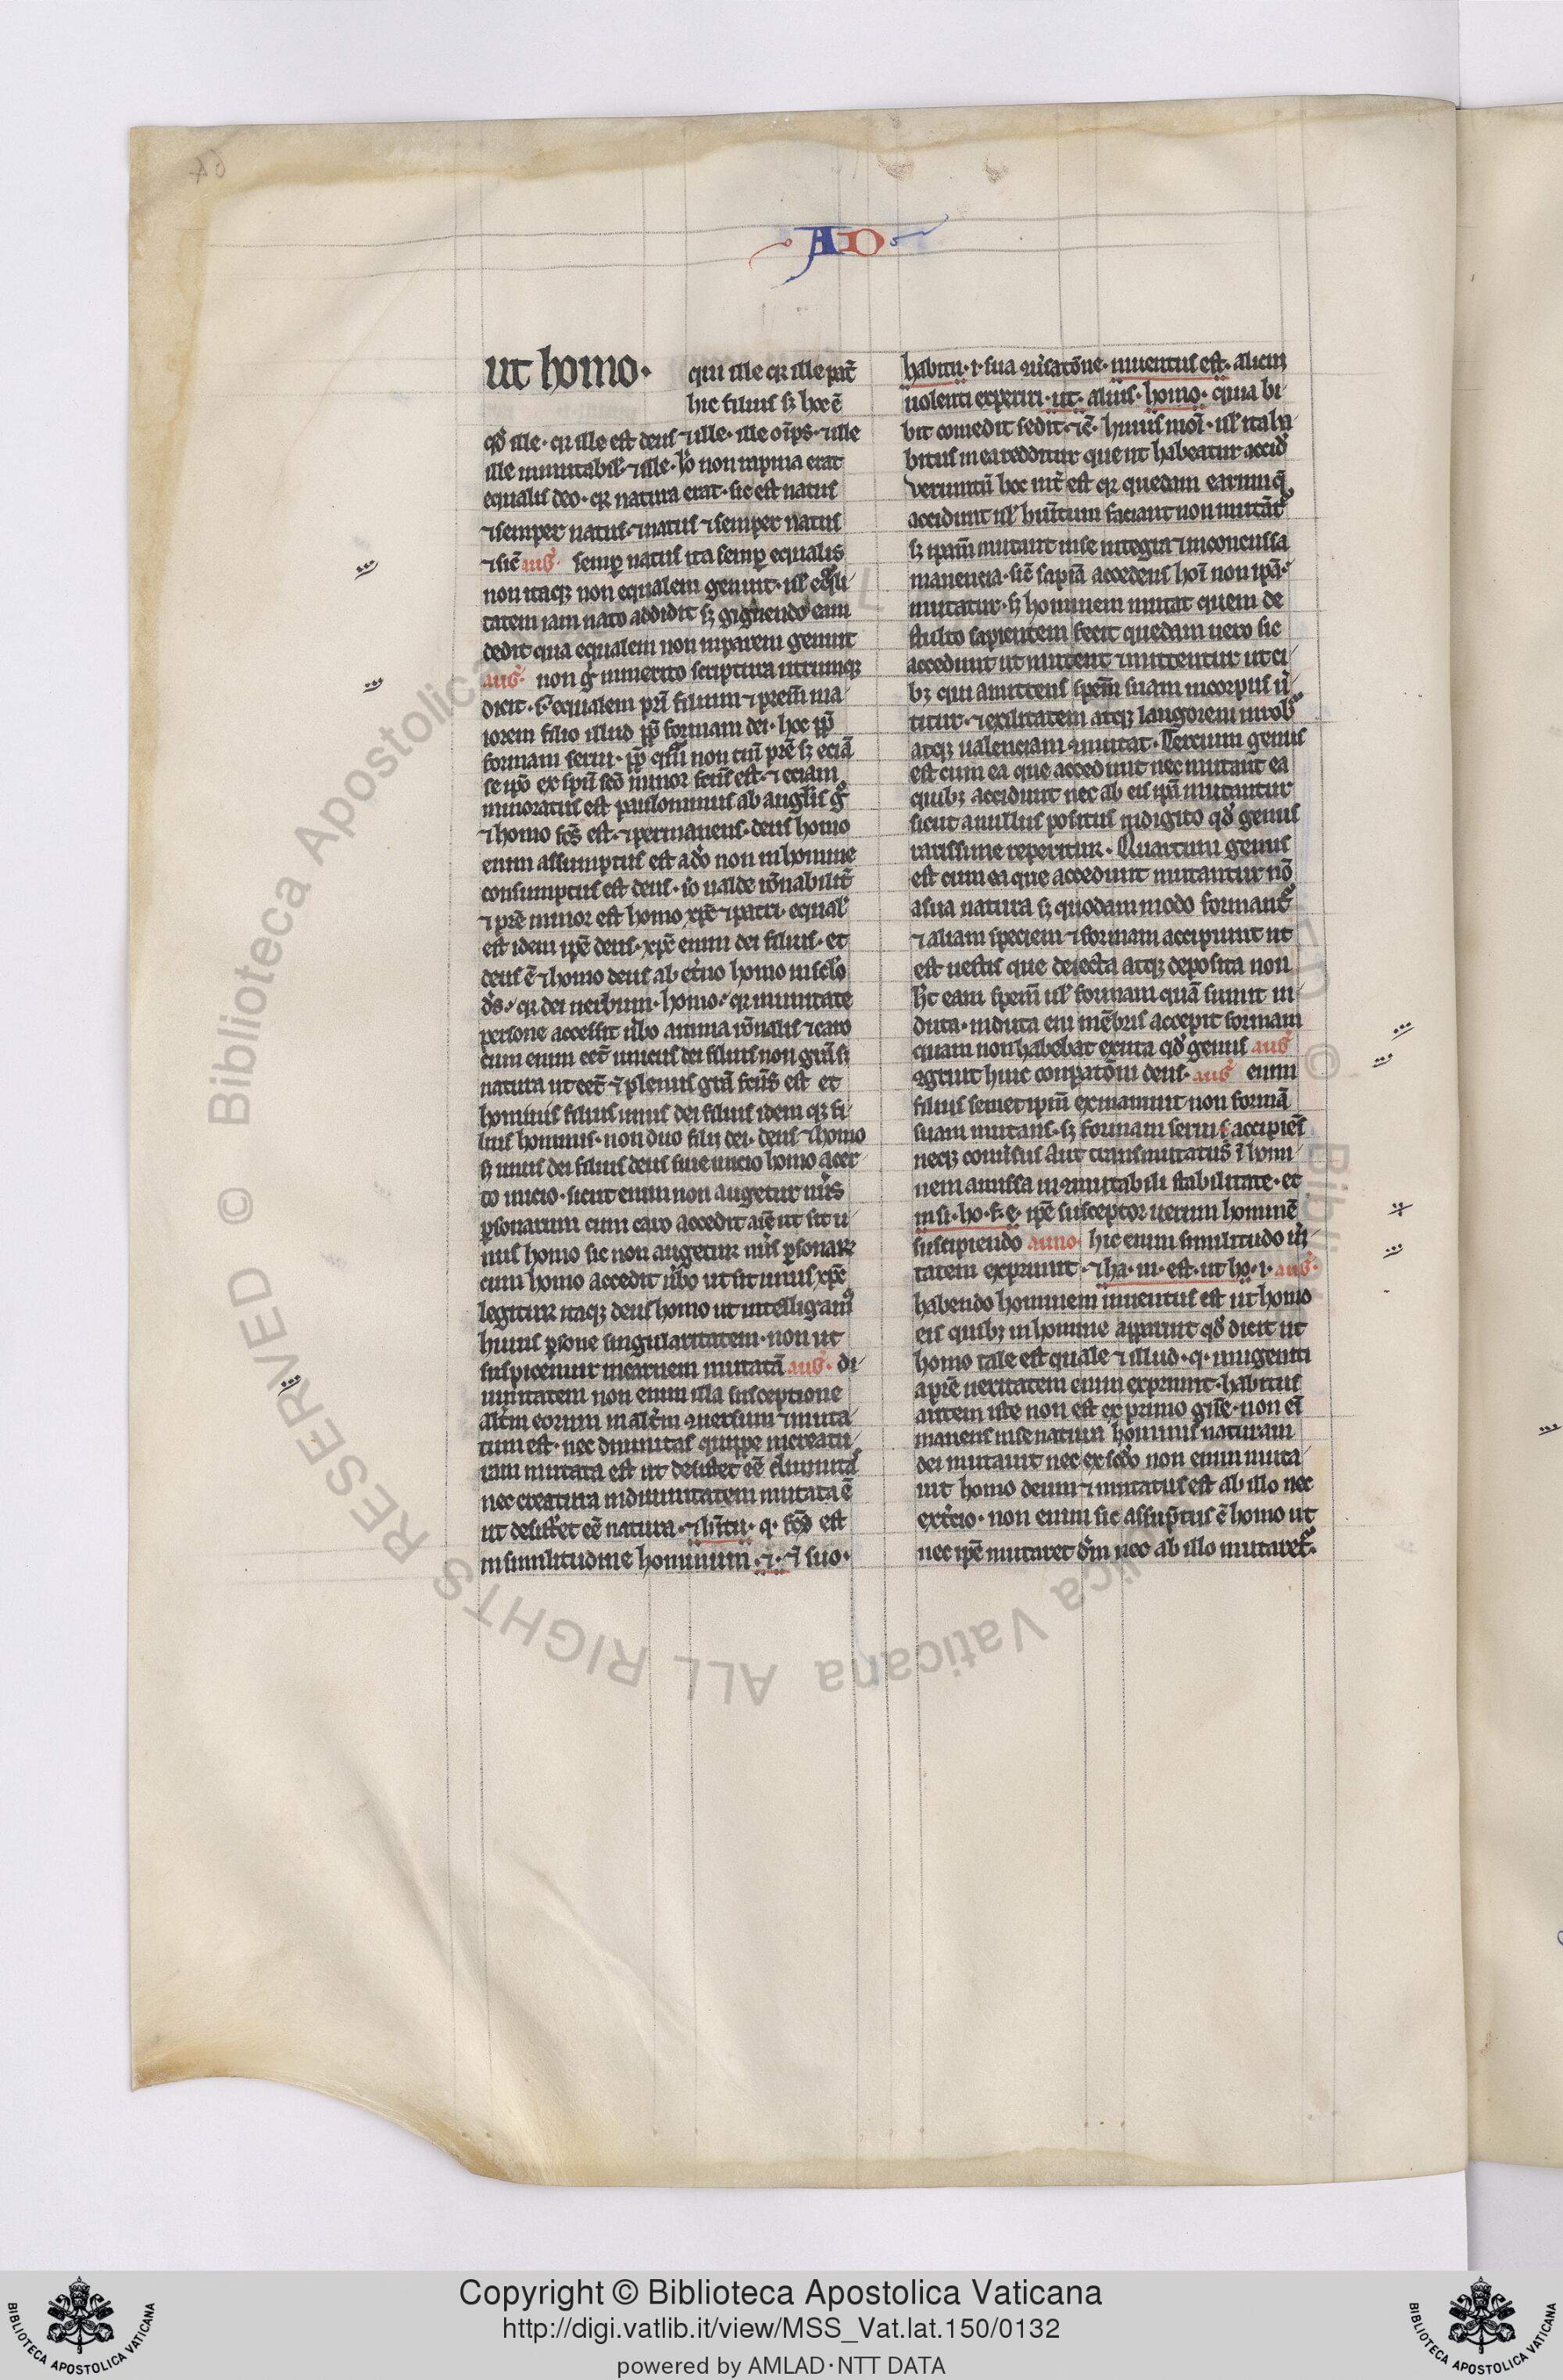 AD
ut homo· qui ille qr ille pat̄
hic filius sꝫ hoc ē
qd̓ ille· qr ille est deus ⁊ ille· ille oīps· ⁊ ille
ille immutabil̓· ⁊ ille· io̓ non rapina erat
equalis deo· qr natura erat· sic est natus
⁊ semper natus· ⁊ natus ⁊ semper natus
⁊ sic̄ aug̓ semꝑ natus ita semꝑ equalis
non itaqꝫ non equalem genuit· ul̓ eq̓li
tatem iam nato addidit sꝫ gignendo eam
dedit qua equalem non inparem genuit
aug̓· non g̓ inmerito scriptura utrumqꝫ
dicit· s· equalem pr̄i filium ⁊ prem̄ ma
iorem filio illud ꝓp̄ formam dei· hoc ꝓp̄
formam serui· ꝓp̄ quā non tm̄ prē sꝫ eciā
se ip̄o ex sp̄u sc̄o minor fc̄us est· ⁊ eciam
minoratus est paulominus ab angl̓is g̓
⁊ homo fc̄s est· ⁊ permanens· deus homo
enim assumptus est a do̓ non in homine
consumptus est deus· io̓ ualde rōnabilit̄
⁊ prē minor est homo xp̄c ⁊ patri· equal̓
est idem ip̄e deus· xp̄c enim dei filius· et
deus ē ⁊ homo deus ab et̓no homo in sclo̓
ds̓· qr dei uerbum· homo· qr in unitate
persone accessit u̓bo anima rōnalis ⁊ caro
cum enim eet̄ unicus dei filius non grā sꝫ
natura ut eet̄ ⁊ plenus grā fc̄us est et
hominis filius unus dei filius idem qꝫ fi
lius hominis· non duo filij dei· deus ⁊ homo
sꝫ unus dei filius deus sine inicio homo a cer
to inicio· sicut enim non augetur nu̓s
ꝑsonarum cum caro accedit aīe ut sit u
nus homo sic non augetur nu̓s ꝑsonaꝝ
cum homo accedit u̓bo ut sit unus xp̄c
legitur itaqꝫ deus homo ut intelligam᷒
huius ꝑsone singularitatem· non ut
suspicemur in carnem mutatā aug̓· di
uinitatem non enim illa susceptione
alt̓m eorum in alt̓m ꝯuersum ⁊ muta
tum est· nec diuinitas quippe in creatu
ram mutata est ut desistet eē diuinitas
nec creatura in diuinitatem mutata ē
ut desist̓et eē natura· ⁊ hītu· q· scd̓ est
in similitudine hominum ·⁊· ⁊ suo·
habitu· i· sua ꝯu̓satōne· inuentus est· alicui
uolenti experiri· ut· alius· homo· quia bi
bit comedit sedit· ⁊c̄· huius mōi· ul̓ ita ha
bitus in ea redditur que ut habeatur accid̓
veruntn̄ hoc int̓ est qr quedam earum q̄
accidunt ul̓ habitum faciant non mutāt᷒
sꝫ ipam̄ mutant in se integra ⁊ inconcussa
manencia· sic̄ sapīa accedens hoī non ipā
mutatur· sꝫ hominem mutat quem de
stulto sapientem fecit quedam uero sic
accedunt ut mutent ⁊ mittentur ut ci
bꝫ qui amittens spem̄ suam in corpus u̓
titur· ⁊ exilitatem atqꝫ langorem in rob᷒
atqꝫ ualenciam ꝯmutat· Tercium genus
est cum ea que accedunt nec mutant ea
quibꝫ accidunt nec ab eis ip̄a mutantur
sicut anullus positus in digito qd̓ genus
rarissime reperitur· Quartum genus
est cum ea que accedunt mutantur nō
a sua natura sꝫ quodam modo formant᷒
⁊ aliam speciem ⁊ formam accipiunt ut
est uestis que deiecta atqꝫ deposita non
ht̄ eam spem̄ ul̓ formam quā sumit in
duta· induta eni mēbris accepit formam
quam non habebat exuta qd̓ genus aug̓
ꝯgruit huic conpatōni deus· aug̓ enim
filius semet ipm̄ exinaniuit non formā
suam mutans· sꝫ formam serui accipiēs
neqꝫ conu̓sus aut transmutatus ī homi
nem amissa inꝯmutabili stabilitate· et
in si· ho· f· e· ip̄e susceptor uerum hominē
suscipiendo anno hic enim similitudo u̓i
tatem exprimit· ⁊ ha· in· est· ut ho· i· aug̓·
habendo hominem inuentus est ut homo
eis quibꝫ in homine apparuit qd̓ dicit ut
homo tale est quale ⁊ illud· q· unigeniti
a prē ueritatem enim exprimit· habitus
autem iste non est ex primo gn̄e· non ei̓
manens in se natura hominis naturam
dei mutauit nec ex scd̓o non enim muta
uit homo deum ⁊ mutatus est ab illo nec
ex t̓cio· non enim sic assup̄tus ē homo ut
nec ip̄e mutaret dm̓ nec ab illo mutaret᷒·
Copyright © Biblioteca Apostolica Vaticana
http://digi.vatlib.it/view/MSS_Vat.lat.150/0132
powered by AMLAD·NTT DATA